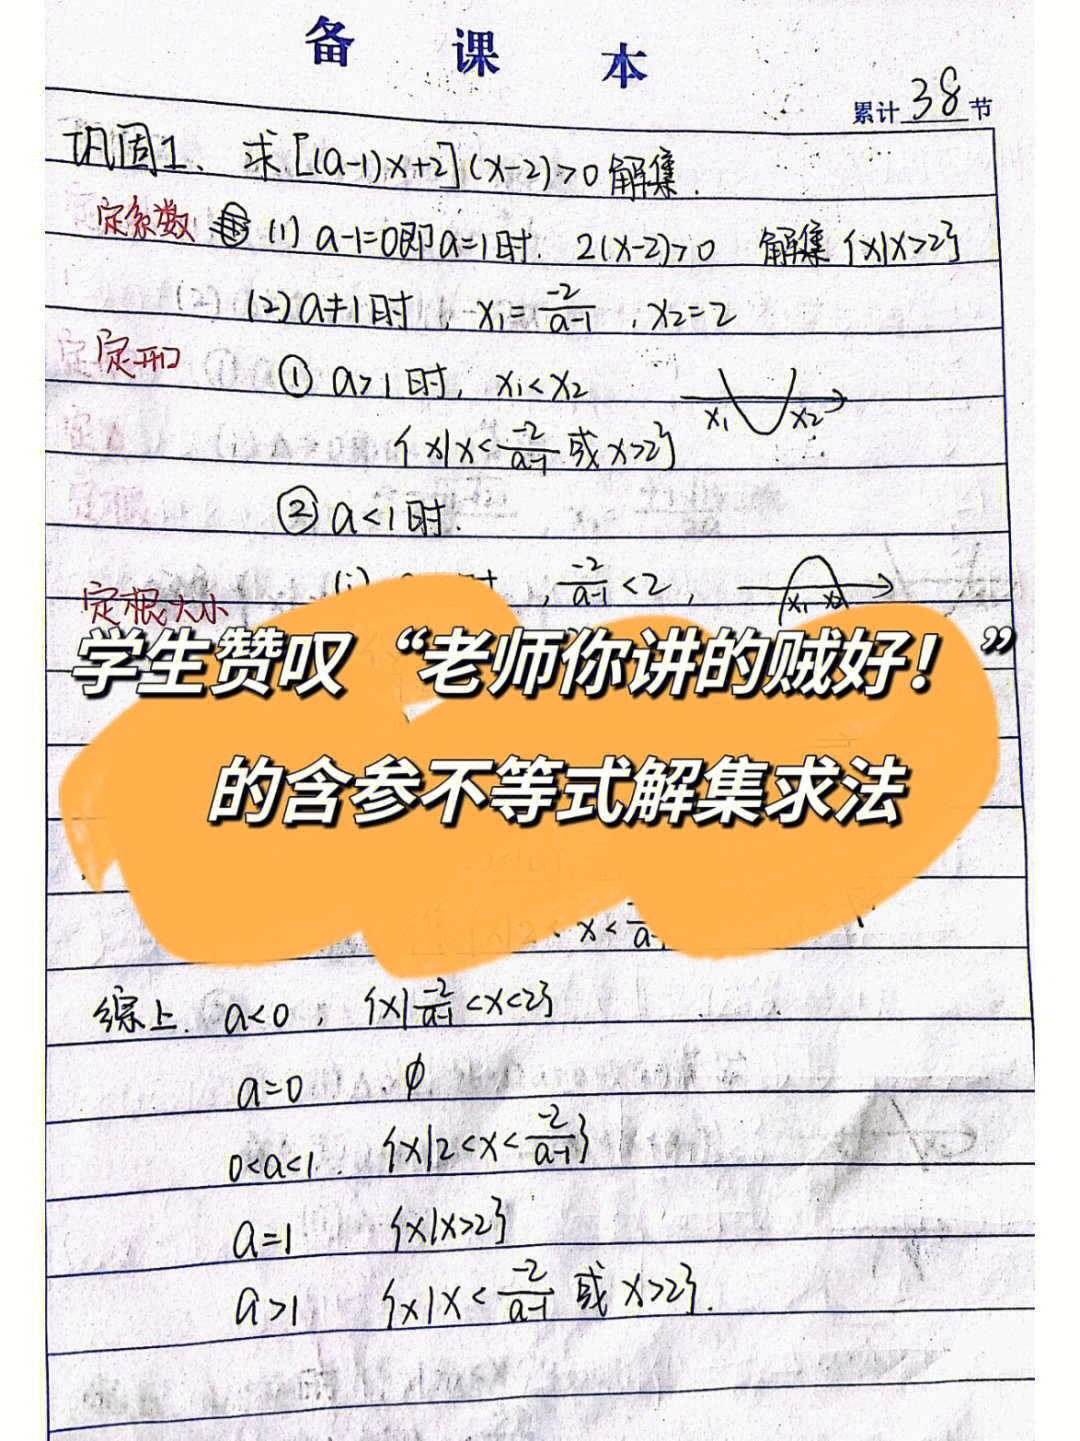 备 课 本
累计 38 节
巩固1、求[(a-1)x+2](x-2)>0解集.
定系数 (1) a-1=0即a=1时. 2(x-2)>0 解集{x|x>2}
(2) a≠1时, x₁=-2/(a-1), x₂=2
定形 ① a>1时, x₁<x₂
x₁ x₂
{x|x<-2/(a-1) 或 x>2}
② a<1时.
(i) 时, -2/(a-1)<2,
x₁ x₂
定根大小
学生赞叹“老师你讲的贼好!”
的含参不等式解集求法
2< x<
综上. a<0, {x|-2/(a-1)<x<2}
a=0 ∅
0<a<1 {x|2<x<-2/(a-1)}
a=1 {x|x>2}
a>1 {x|x<-2/(a-1) 或 x>2}.